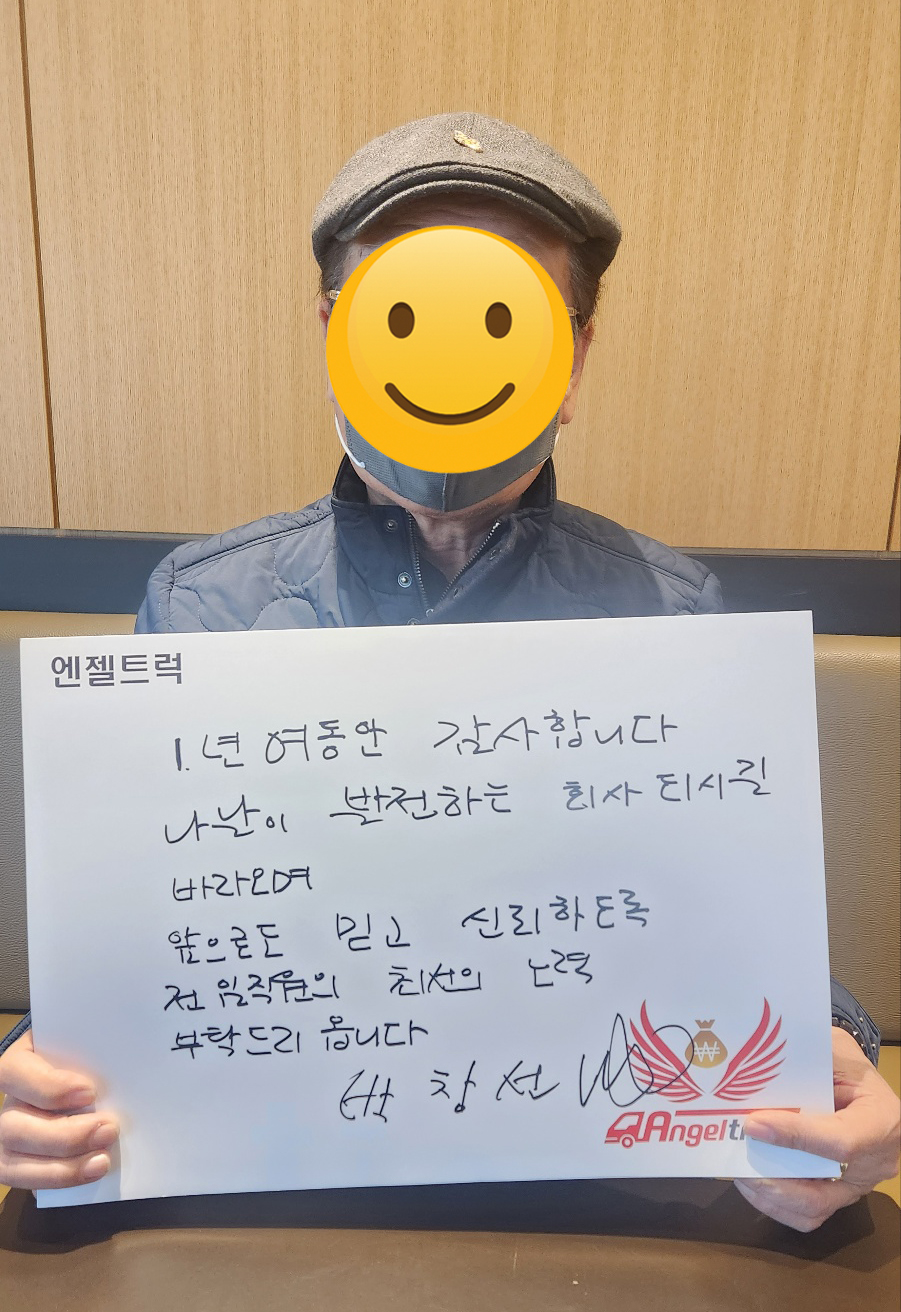 엔젤트럭
1.년 여동안 감사합니다
나날이 발전하는 회사 되시길
바라오며
앞으로도 믿고 신뢰하도록
전 임직원의 최선의 노력
부탁드리 옵니다
박 창 선
Angelt